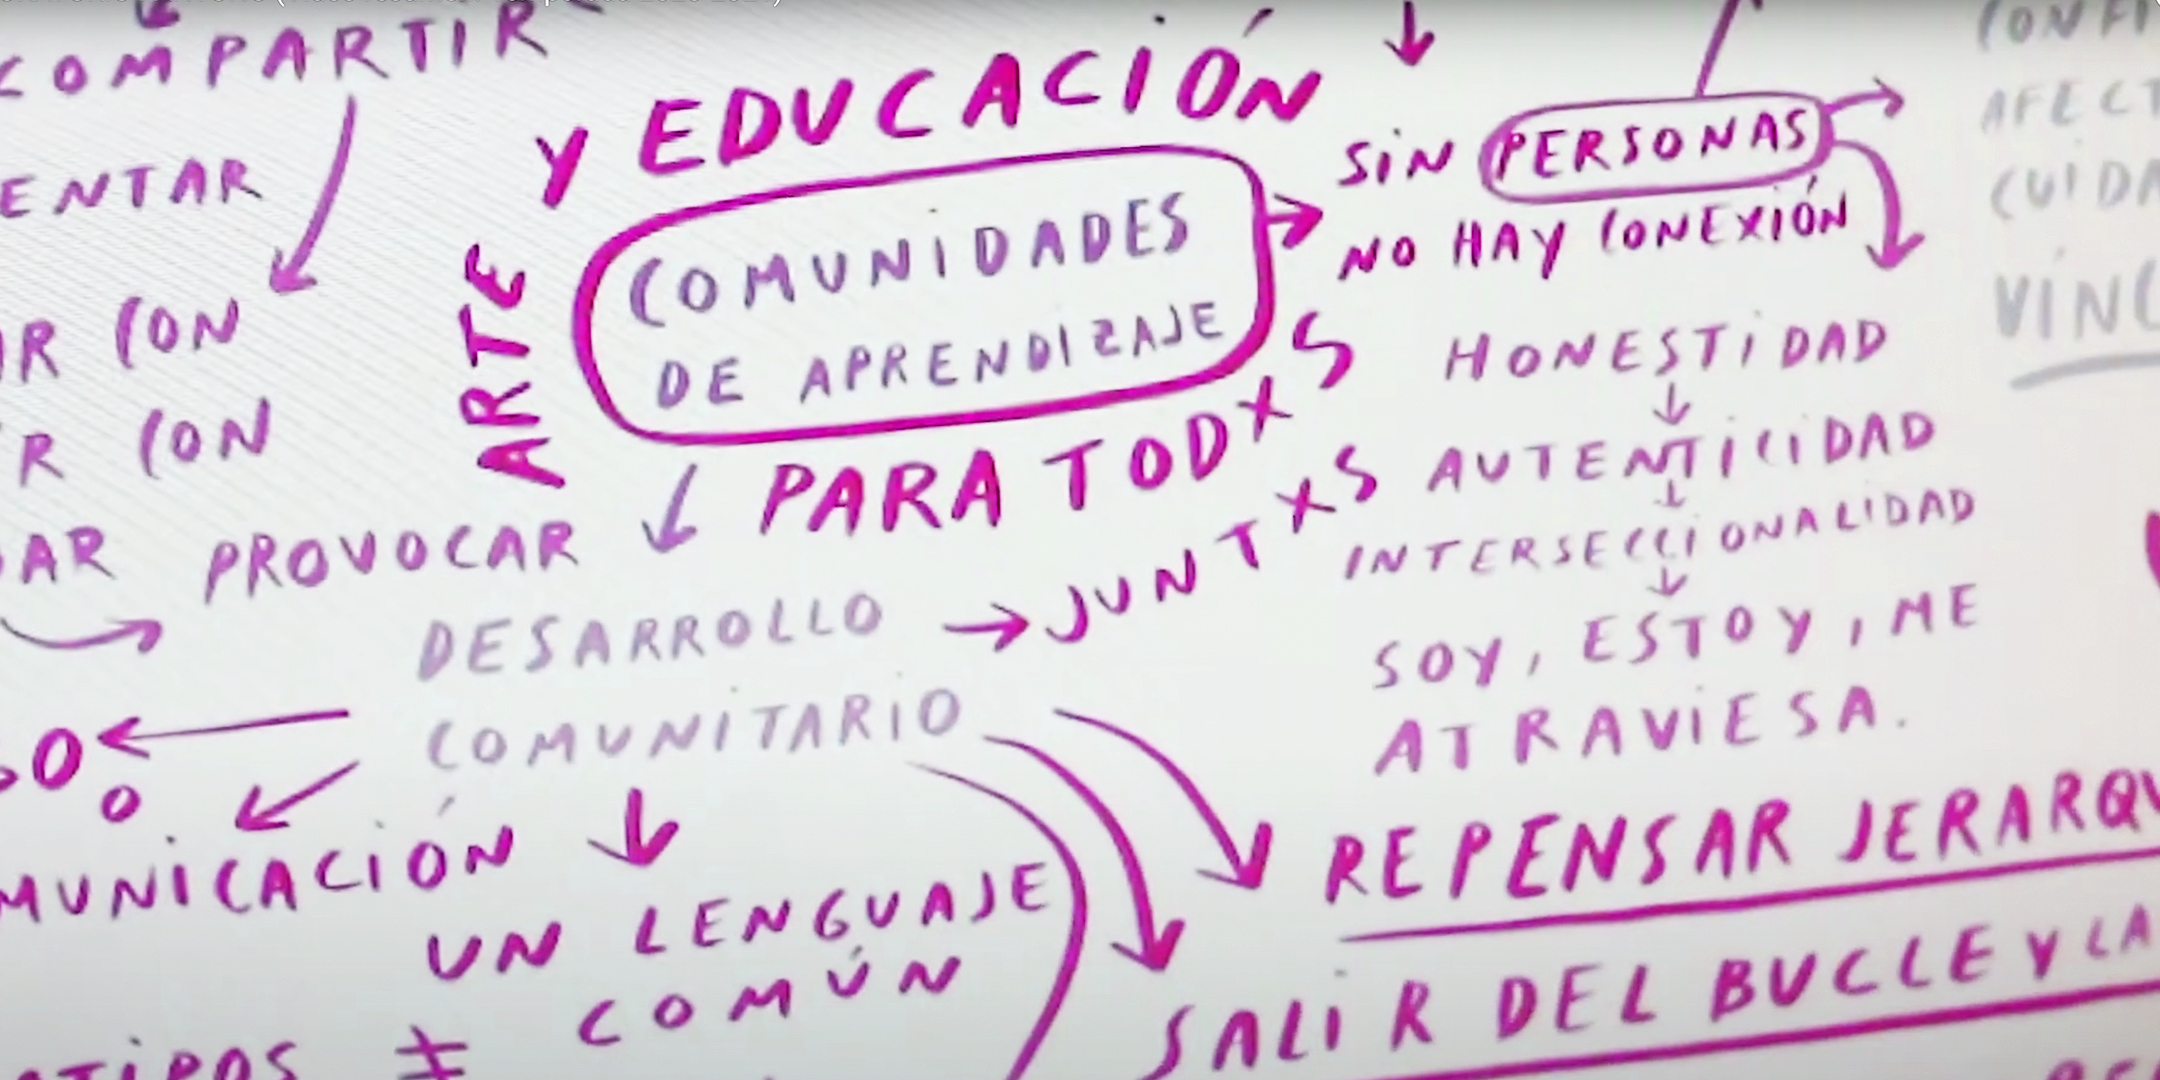 COMPARTIR
ENTAR
AR CON
R CON
AR
PROVOCAR
ARTE
Y EDUCACIÓN
COMUNIDADES
DE APRENDIZAJE
PARA TODXS
SIN PERSONAS
NO HAY CONEXIÓN
CONFI
AFECT
CUIDA
VÍNC
HONESTIDAD
AUTENTICIDAD
INTERSECCIONALIDAD
SOY, ESTOY, ME
ATRAVIESA.
DESARROLLO
COMUNITARIO
JUNTXS
MUNICACIÓN
UN LENGUAJE
COMÚN
TIPOS ≠
REPENSAR JERARQU
SALIR DEL BUCLE Y LA